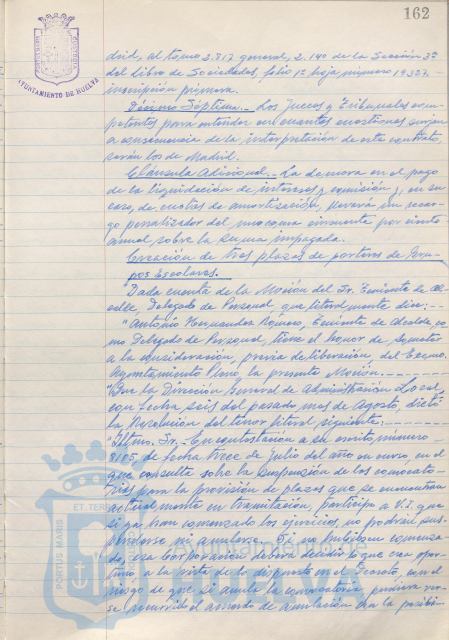 162
AYUNTAMIENTO DE HUELVA
drid, al tomo 2.817 general, 2.140 de la Sección 3ª
del libro de Sociedades, folio 1º hoja número 19.327,
inscripción primera.
Décimo Séptima.- Los Jueces y Tribunales com-
petentes para entender en cuantas cuestiones surjan
a consecuencia de la interpretación de este contrato,
serán los de Madrid.
Cláusula Adicional.- La demora en el pago
de la liquidación de intereses y comisión y, en su
caso, de cuotas de amortización, llevará un recar-
go penalizador del uno coma cincuenta por ciento
anual sobre la suma impagada.
Creación de tres plazas de porteros de Gru-
pos Escolares.
Dada cuenta de la Moción del Sr. Teniente de Al-
calde, Delegado de Personal que literalmente dice:--
"Antonio Hernández Romero, Teniente de Alcalde, co-
mo Delegado de Personal, tiene el honor de someter
a la consideración, previa deliberación, del Excmo.
Ayuntamiento Pleno la presente Moción.-------
"Que la Dirección General de Administración Local,
con fecha seis del pasado mes de Agosto, dictó
la Resolución del tenor literal siguiente:-----
"Iltmo. Sr. En contestación a su escrito número
8105 de fecha trece de julio del año en curso en el
que consulta sobre la suspensión de las convocato-
rias para la provisión de plazas que se encuentran
actualmente en tramitación, participo a V.I. que
si ya han comenzado los ejercicios, no podrán sus-
penderse ni anularse. Si no hubiesen comenza-
do, esa Corporación deberá decidir lo que crea opor-
tuno, a la vista de lo dispuesto en el Decreto, con el
riesgo de que si anula la convocatoria, pudiera ver-
se recurrido el acuerdo de anulación con la posibi-
PORTUS MARIS
ET TERRAE
HUELVA